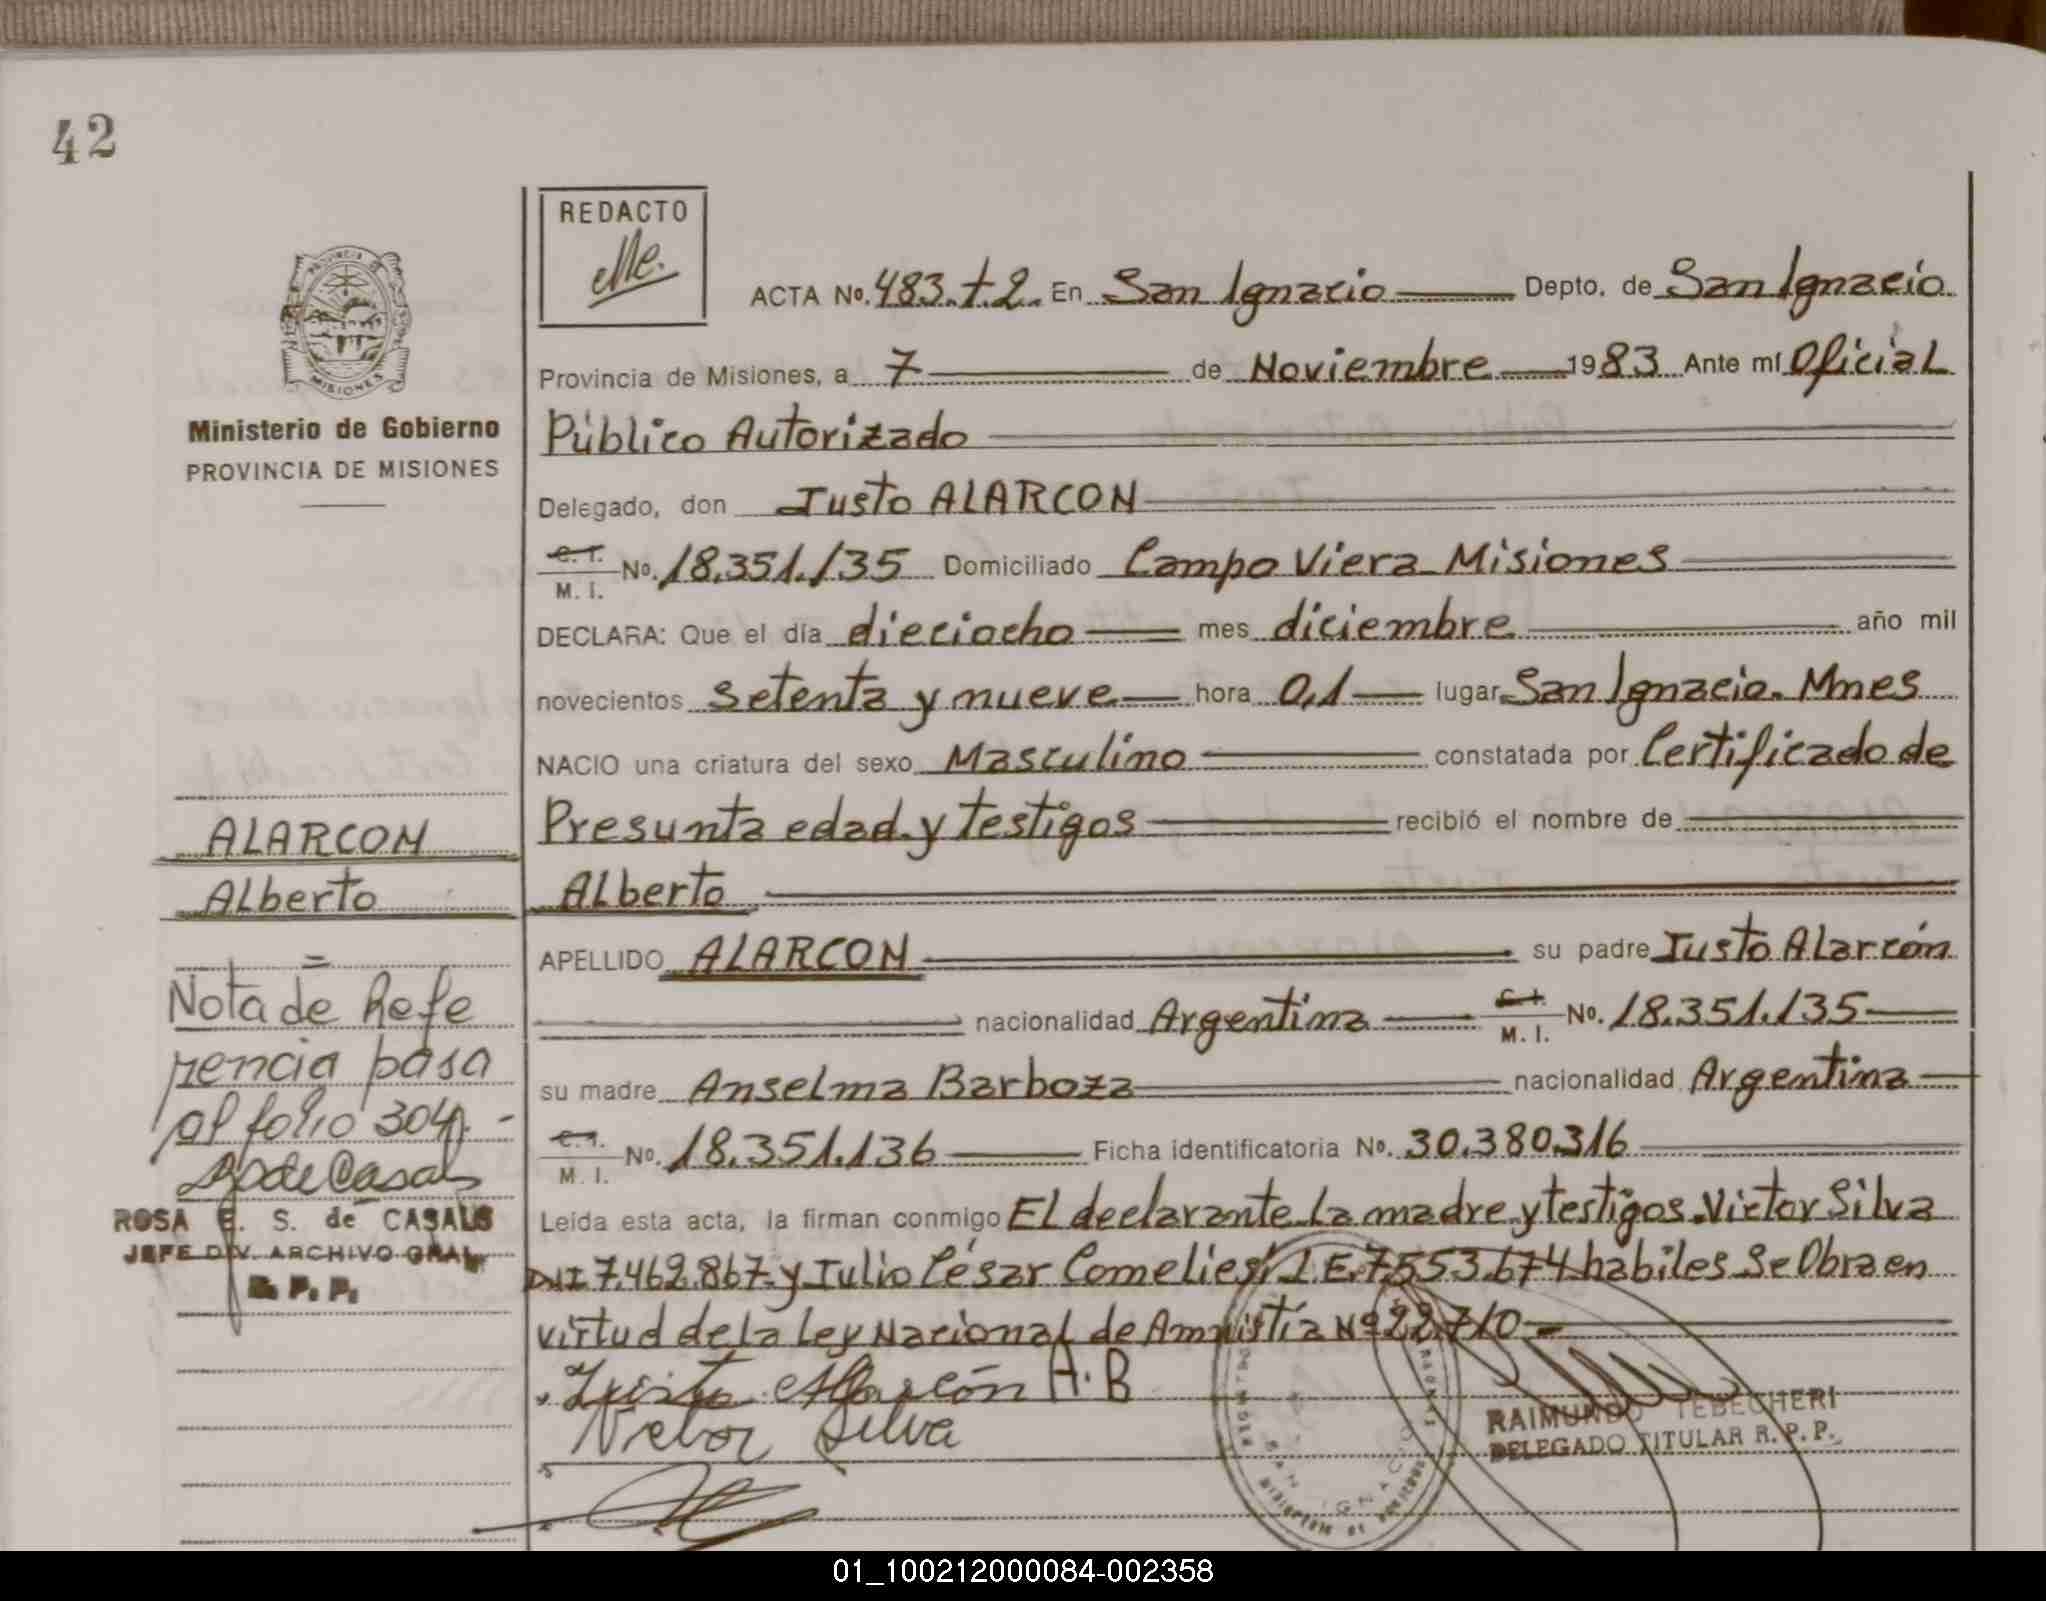 42
REDACTO
Me.
PROVINCIA DE
MISIONES
Ministerio de Gobierno
PROVINCIA DE MISIONES
ACTA No. 483.t2. En San Ignacio Depto. de San Ignacio
Provincia de Misiones, a 7 de Noviembre 1983 Ante mí Oficial
Público Autorizado
Delegado, don Justo ALARCON
C. I. M. I. No. 18.351.135 Domiciliado Campo Viera Misiones
DECLARA: Que el día dieciocho mes diciembre año mil
novecientos setenta y nueve hora 0,1 lugar San Ignacio. Mnes
NACIO una criatura del sexo Masculino constatada por Certificado de
Presunta edad y testigos recibió el nombre de
Alberto
APELLIDO ALARCON su padre Justo Alarcón
nacionalidad Argentina C. I. M. I. No. 18.351.135
su madre Anselma Barboza nacionalidad Argentina
C. I. M. I. No. 18.351.136 Ficha identificatoria No. 30.380.316
Leída esta acta, la firman conmigo El declarante la madre y testigos Victor Silva
DNI 7.462.867 y Julio César Comelies L.E. 7.553.674 habiles Se Obra en
virtud de la Ley Nacional de Amnistía Nº 22.710
Justo Alarcón A.B
Victor Silva
RAIMUNDO TEBECHERI
DELEGADO TITULAR R. P. P.
SAN IGNACIO
ALARCON
Alberto
Nota de Refe
rencia pasa
al folio 304.-
de Casals
ROSA E. S. de CASALS
JEFE DIV. ARCHIVO GRAL.
R. P. P.
01_100212000084-002358